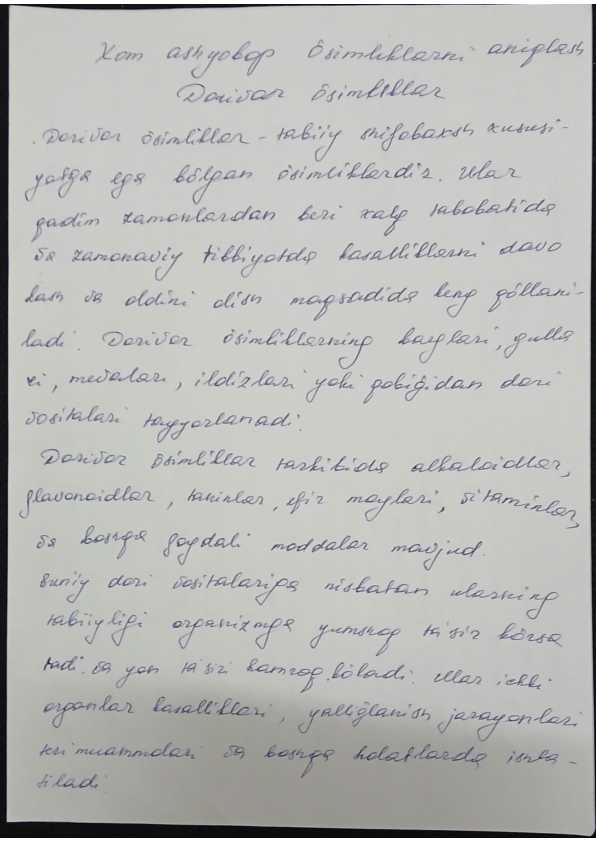 Xom ashyobop ősimliklarni aniqlash
Dorivor ősimliklar
Dorivor ősimliklar - tabiiy shifobaxsh xususi-
yatga ega bőlgan ősimliklardir. Ular
qadim zamonlardan beri xalq tabobatida
va zamonaviy tibbiyotda kasalliklarni davo
lash va oldini olish maqsadida keng qőllani-
ladi. Dorivor ősimliklarning barglari, gulla
ri, mevalari, ildizlari yoki qobiğidan dori
vositalari tayyorlanadi.
Dorivor ősimliklar tarkibida alkaloidlar,
flavonoidlar, taninlar, efir moylari, vitaminlar,
va boshqa foydali moddalar mavjud.
Suniy dori vositalariga nisbatan ularning
tabiiyligi organizmga yumshoq ta'sir kőrsa
tadi. va yon ta'siri kamroq bőladi. Ular ichki
organlar kasalliklari, yalliğlanish jarayonlari
teri muammolari va boshqa holatlarda ishla-
tiladi.